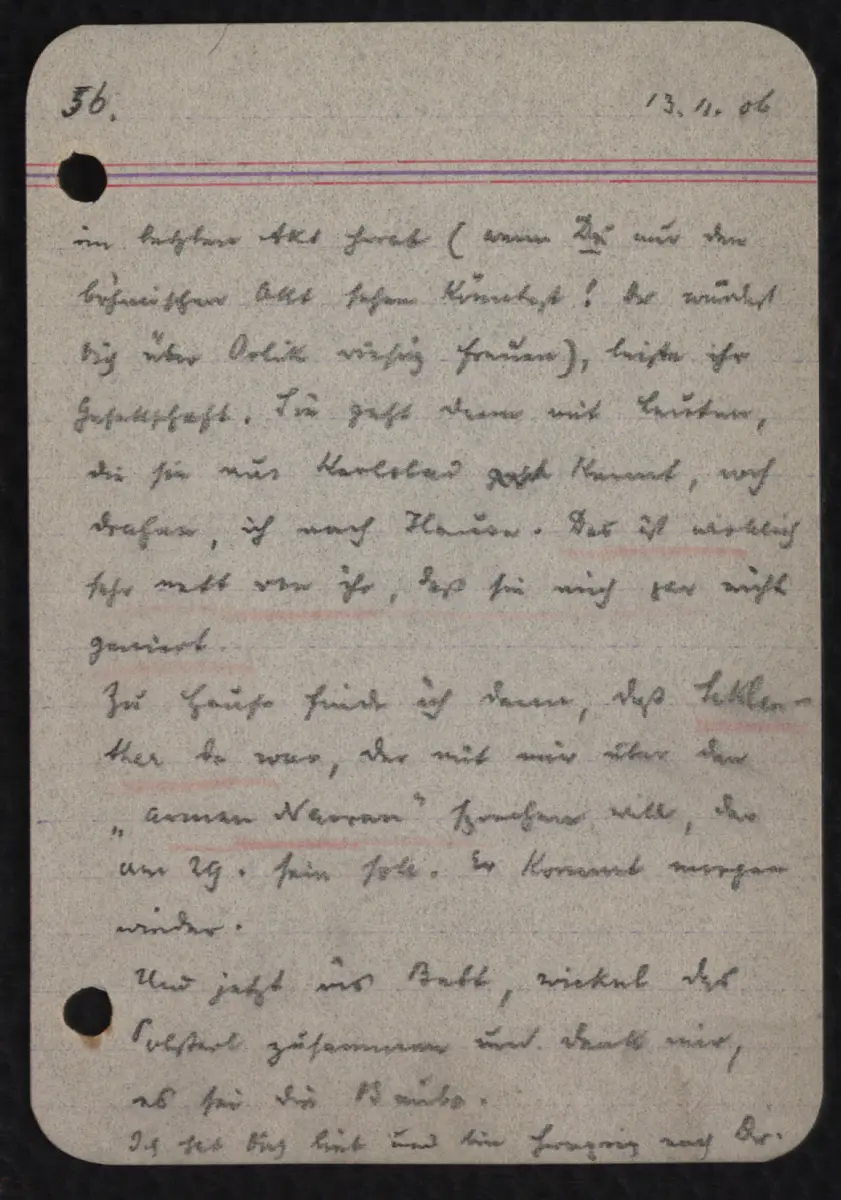 56.
13.11.06
im letzten Akt herab (wenn Du nur den
böhmischen Akt sehen könntest! Du würdest
Dich über Orlik riesig freuen), leiste ihr
Gesellschaft. Sie geht dann mit Leuten,
die sie aus Karlsbad kennt, noch
drahen, ich nach Hause. Das ist wirklich
sehr nett von ihr, daß sie mich gar nicht
geniert.
Zu Hause finde ich dann, daß
da war, der mit mir über den
„armen Narren" sprechen will, der
am 29. sein soll. Er kommt morgen
wieder.
Und jetzt ins Bett, wickel das
Polsterl zusammen und denk mir,
es sei die
Ich hab Dich lieb und bin hungrig nach Dir.